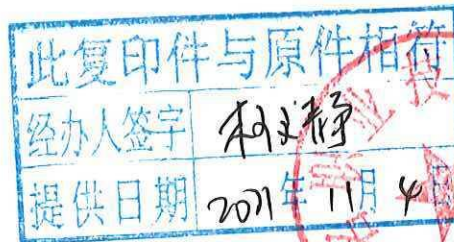 此复印件与原件相符
经办人签字 柯文静
提供日期 2021年 11月 4日
业投